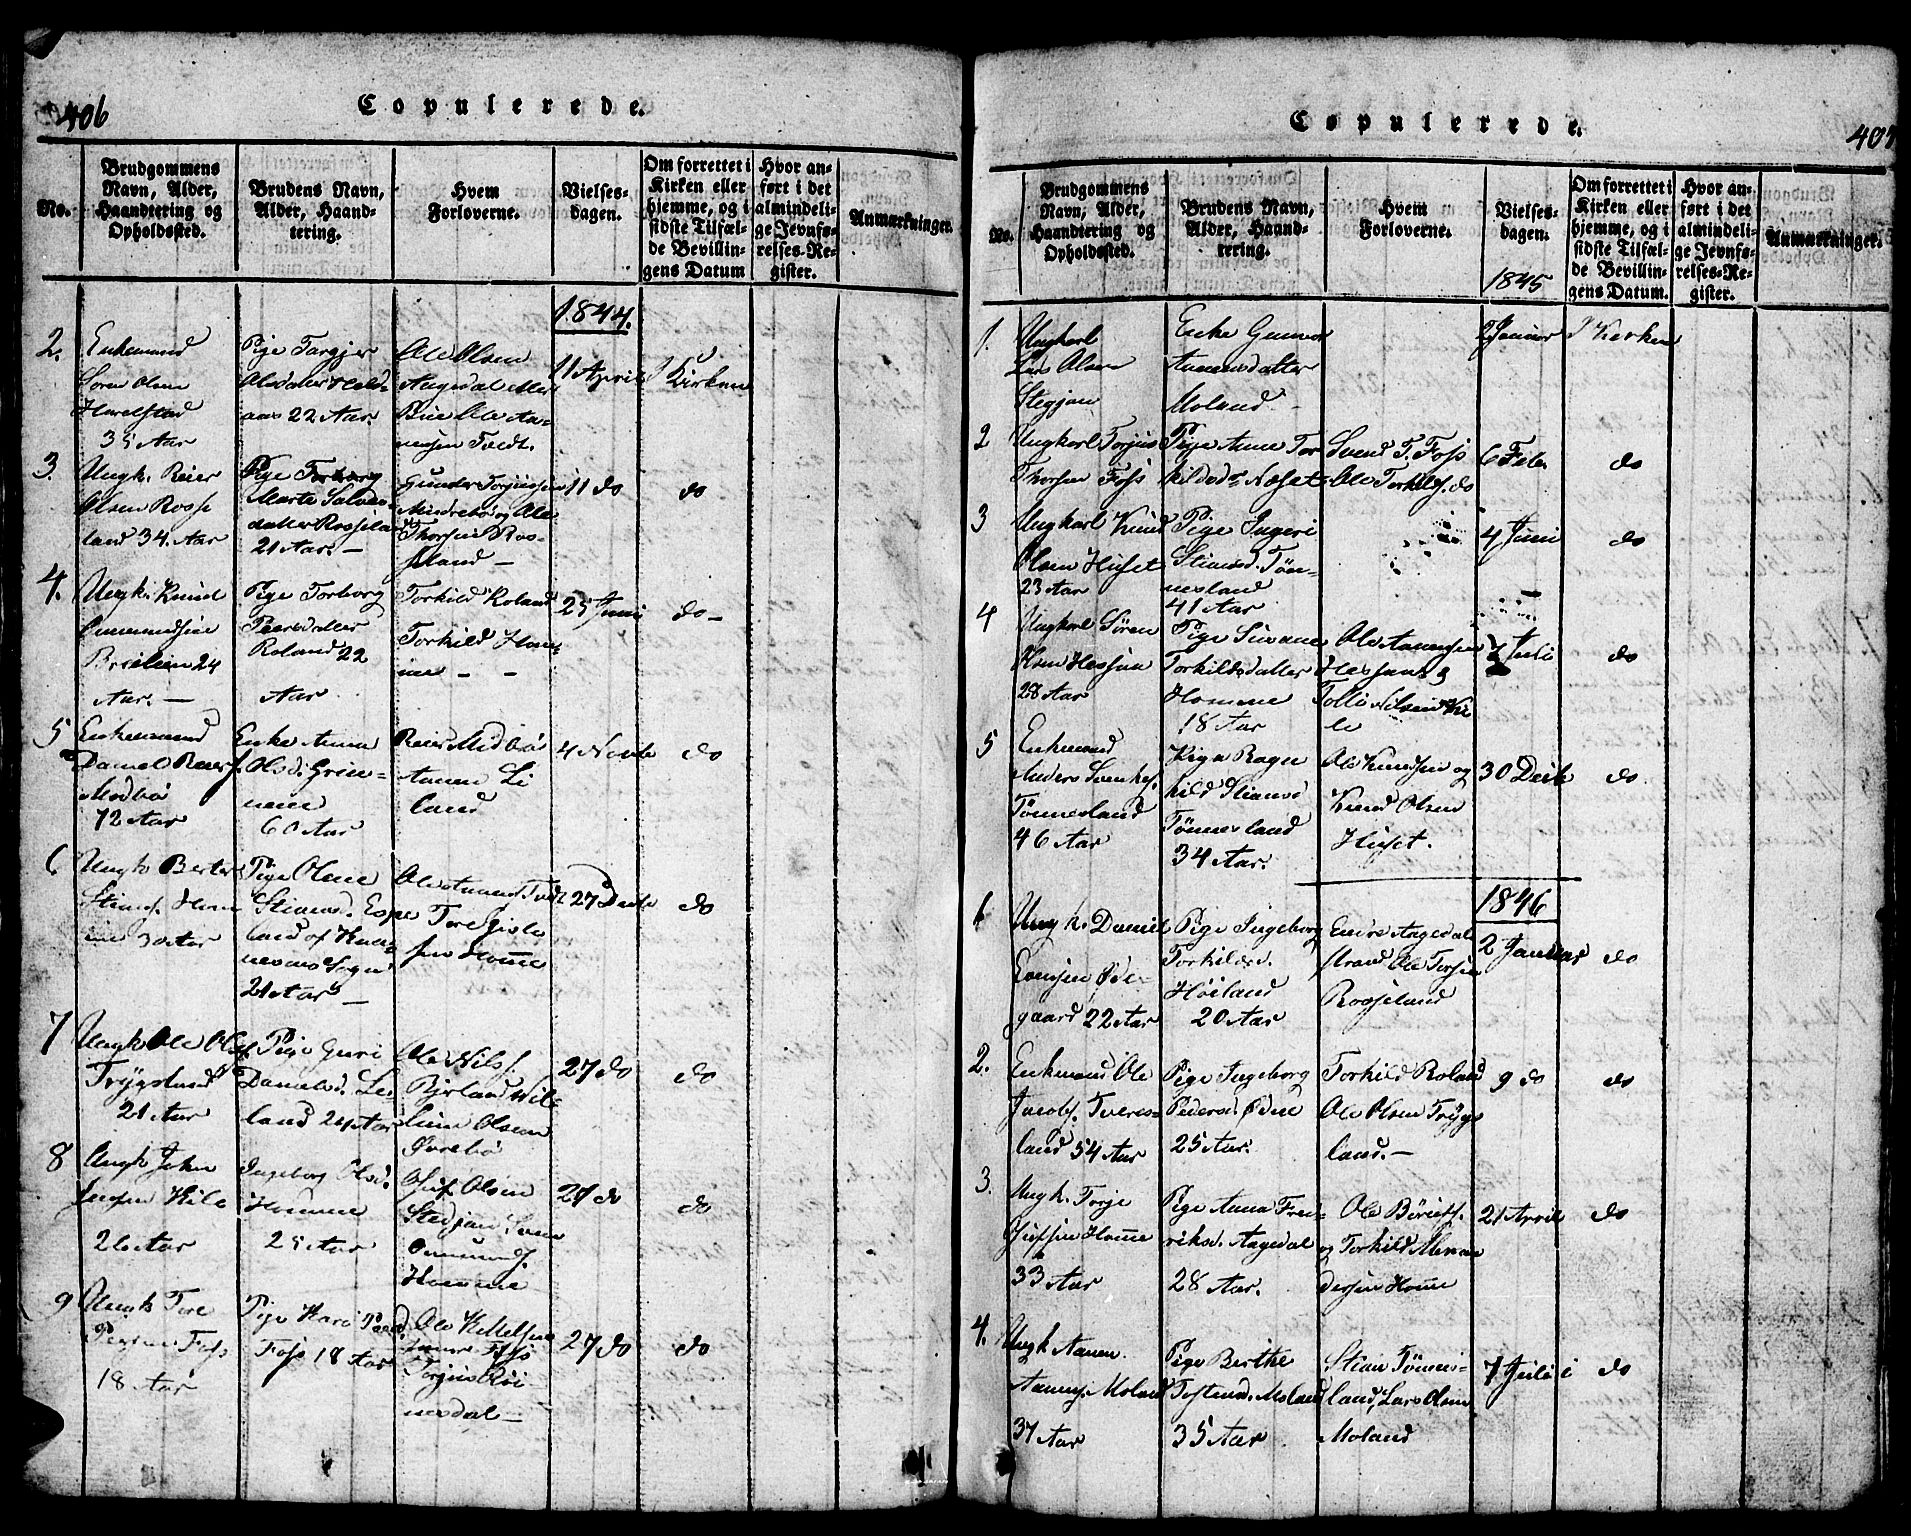 406
Copulerede.
No.
Brudgommens
Navn, Alder,
Haandtering og
Opholdssted.
Brudens Navn,
Alder, Haand-
tering.
Hvem
Forloverne.
Vielses-
dagen.
Om forrettet i
Kirken eller
hjemme, og i
sidste Tilfæl-
de Bevillin-
gens Datum
Hvor an-
ført i det
almindeli-
ge Jevnfø-
relses-Re-
gister.
Anmærkninger.
1844.
2.
Enkemand
Søren Olsen
Harelstad
35 Aar
Pige Targjer
Olsdatter
22 Aar.
Ole Olsen
Aagedal
Ole Aa-
nensen Tvedt.
11 April
I Kirken
3.
Ungk. Reier
Olsen Rosse
land 34 Aar
Pige
Marte
datter Rosseland
21 Aar. —
Gunder Torjussen
Mindrebø og Ole
Thorsen Ros-
seland —
11 do
do
4.
Ungk. Knud
Ommundsen
24
Aar. —
Pige Torborg
Peersdatter
Roland 22
Aar
Torkild Roland
Torkild Hom-
me - -
25 Juni
do -
5
Enkemand
Daniel Reiers.
Modbø
72 Aar
Enke Anna
Olsd. Grim-
60 Aar
Reier Midbø
Aanen Li
land
4 Novbr
do
6
Ungk
Stians. Hom
me 30 Aar
Pige Olene
Stiansd. Espe
land af
Sogn
21 Aar —
Ole Aanens. Tvedt
Tore Gisle
sen Homme
27 Decbr
do
7
Ungk Ole Ols.
Trygsland
21 Aar
Pige Guri
Danielsd. Lei
land 24 Aar
Ole Nils.
Bjerland Wil-
lum Olsen
Øvrebø
27 do
do
8
Ungk John
Jensen Kile
26 Aar
Ingeborg Olsd.
Homme
25 Aar
Olsen
Stedjan
Ommunds.
Homme
27 do
do
9
Ungk Tore
Foss
18 Aar
Pige Kari
Foss 18 Aar
Ole Kittelsen
Foss
Torjus Røi-
nesdal —
27 do
do
407
Copulerede.
No.
Brudgommens
Navn, Alder,
Haandtering og
Opholdssted.
Brudens Navn,
Alder, Haand-
tering.
Hvem
Forloverne.
Vielses-
dagen.
Om forrettet i
Kirken eller
hjemme, og i
sidste Tilfæl-
de Bevillin-
gens Datum.
Hvor an-
ført i det
almindeli-
ge Jevnfø-
relses-Re-
gister.
Anmærkninger.
1845
1.
Ungkarl
Lars Olsen
Stegjan
Enke Gunvor
Aanensdatter
Moland. -
Januar
I Kirken
2
Ungkarl Torjus
Thorsen Foss
Pige Anne Tor
kildsdr Næset
Svend T. Foss
Ole Torkilds. do
6 Febr
do
3
Ungkarl Knud
Olsen Huset
23 Aar
Pige Ingeri
Stiansd. Tøn-
nesland
41 Aar
4 Juni
do
4
Ungkarl Søren
Hessun
28 Aar
Pige Sivane
Torkildsdatter
Homme
18 Aar
Ole Aanensen
Tolli Nilsen Ki
le
7 Juli
do
5
Enkemand
Anders
Tønnesland
46 Aar
Pige Ragn
hild Stiansd
Tønnesland
34 Aar.
Ole Knudsen og
Knud Olsen
Huset.
30 Decbr
do
1846
1
Ungk. Daniel
Evensen Øde-
gaard 22 Aar
Pige Ingeborg
Torkildsd.
Høiland
20 Aar
Endre Aagedal
strand Ole Torsen
Rosseland
2 Januar
do
2.
Enkemand Ole
Jacobs. Tveres-
land 54 Aar
Pige Ingeborg
Pedersd. Ødne
25 Aar.
Torkild Roland
Ole Olsen Trygs
land. —
9 do
do
3.
Ungk. Torje
Homme
33 Aar
Pige Anna Fred-
riksd. Aagedal
28 Aar.
Ole Børufs.
og Torkild Alexan
dersen Homme
21 April
do
4.
Ungk Aanen
Aanens. Moland
37 Aar
Pige Berthe
Tostensd. Moland
35 Aar
Stian Tønnes-
land, Lars Olsen
Moland
7 Juli
do